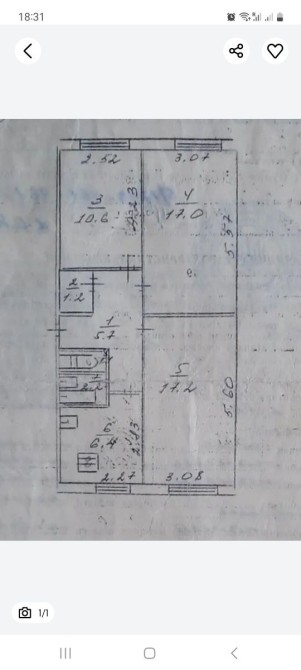 18:31
2.52
3.07
3
10.6
4.23
4
17.0
5.57
2
1.2
1
5.7
5
17.2
5.60
6
6.4
2.27
3.08
1/1